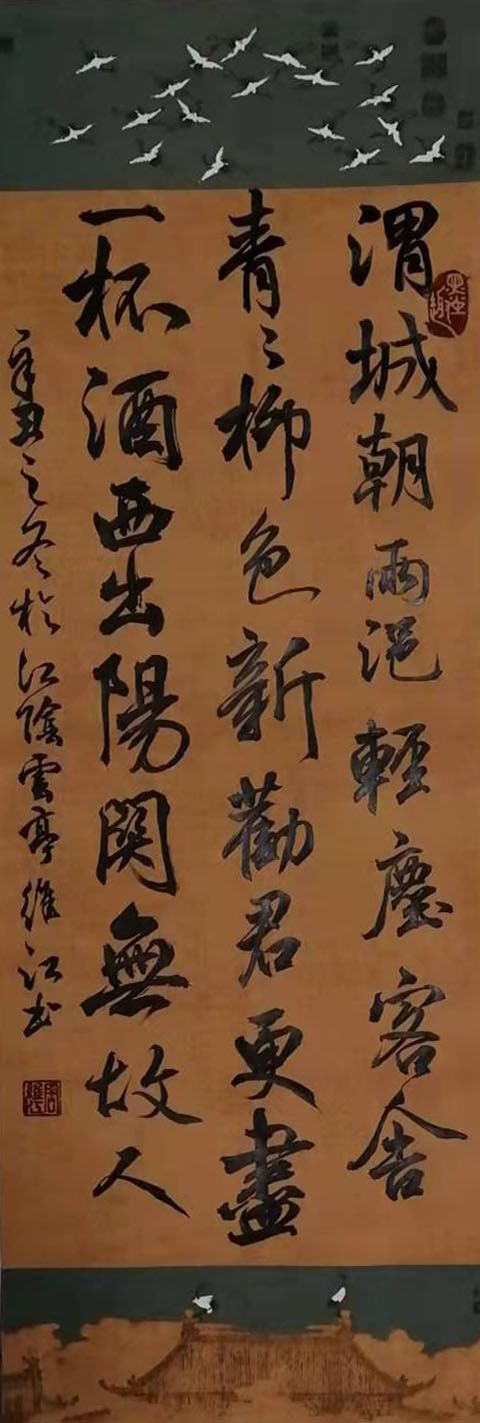 渭城朝雨浥輕塵客舍
青々柳色新勸君更盡
一杯酒西出陽関無故人
辛丑之冬於江陰雲亭維江书